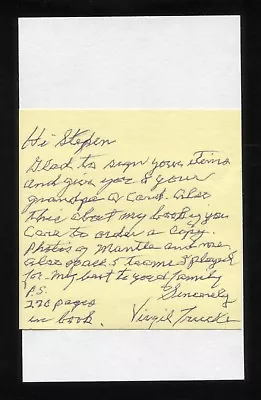 Hi Stepen
Glad to sign your items
and give you & your
grandpa a card. Also
this about my book if you
care to order a copy.
Photos of Mantle and me
also of all 5 teams I played
for. My best to your family
P.S. Sincerely
220 pages
in book. Virgil Trucks